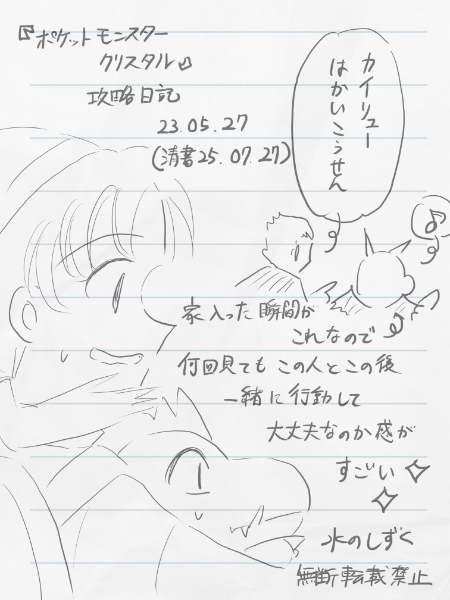 『ポケットモンスター
クリスタル』
攻略日記
23.05.27
(清書25.07.27)
カイリュー
はかいこうせん
♪
家入った瞬間が
これなので
何回見てもこの人とこの後
一緒に行動して
大丈夫なのか感が
すごい
水のしずく
無断転載禁止